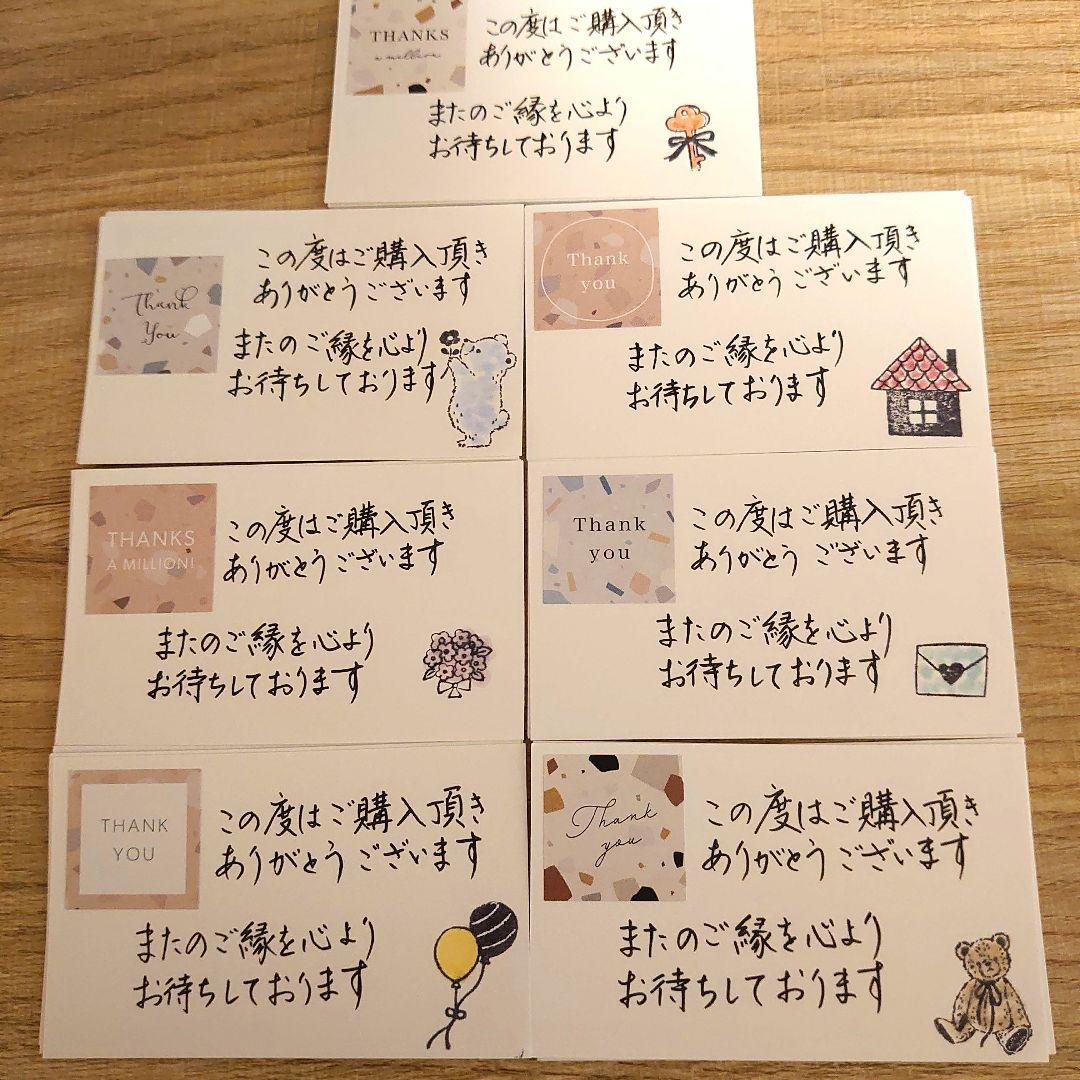 THANKS
a million
この度はご購入頂き
ありがとうございます
またのご縁を心より
お待ちしております
Thank
You
この度はご購入頂き
ありがとうございます
またのご縁を心より
お待ちしております
Thank
you
この度はご購入頂き
ありがとうございます
またのご縁を心より
お待ちしております
THANKS
A MILLION!
この度はご購入頂き
ありがとうございます
またのご縁を心より
お待ちしております
Thank
you
この度はご購入頂き
ありがとうございます
またのご縁を心より
お待ちしております
THANK
YOU
この度はご購入頂き
ありがとうございます
またのご縁を心より
お待ちしております
Thank
you
この度はご購入頂き
ありがとうございます
またのご縁を心より
お待ちしております